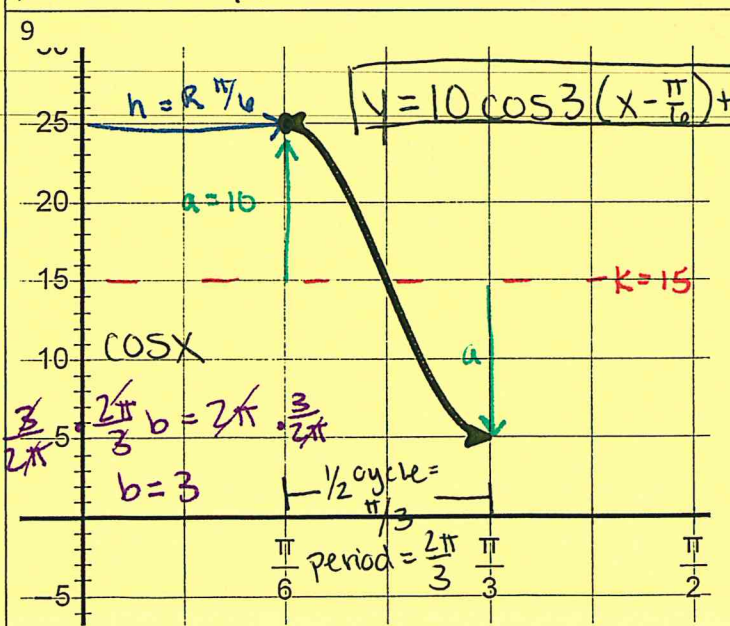 9
30
h = R π/6
y = 10 cos3 (x - π/6) +
25
a = 10
20
15
K = 15
10
cosx
a
3/2π · 2π/3 b = 2π · 3/2π
5
b = 3
1/2 cycle =
π/3
π/6
period = 2π/3
π/3
π/2
-5